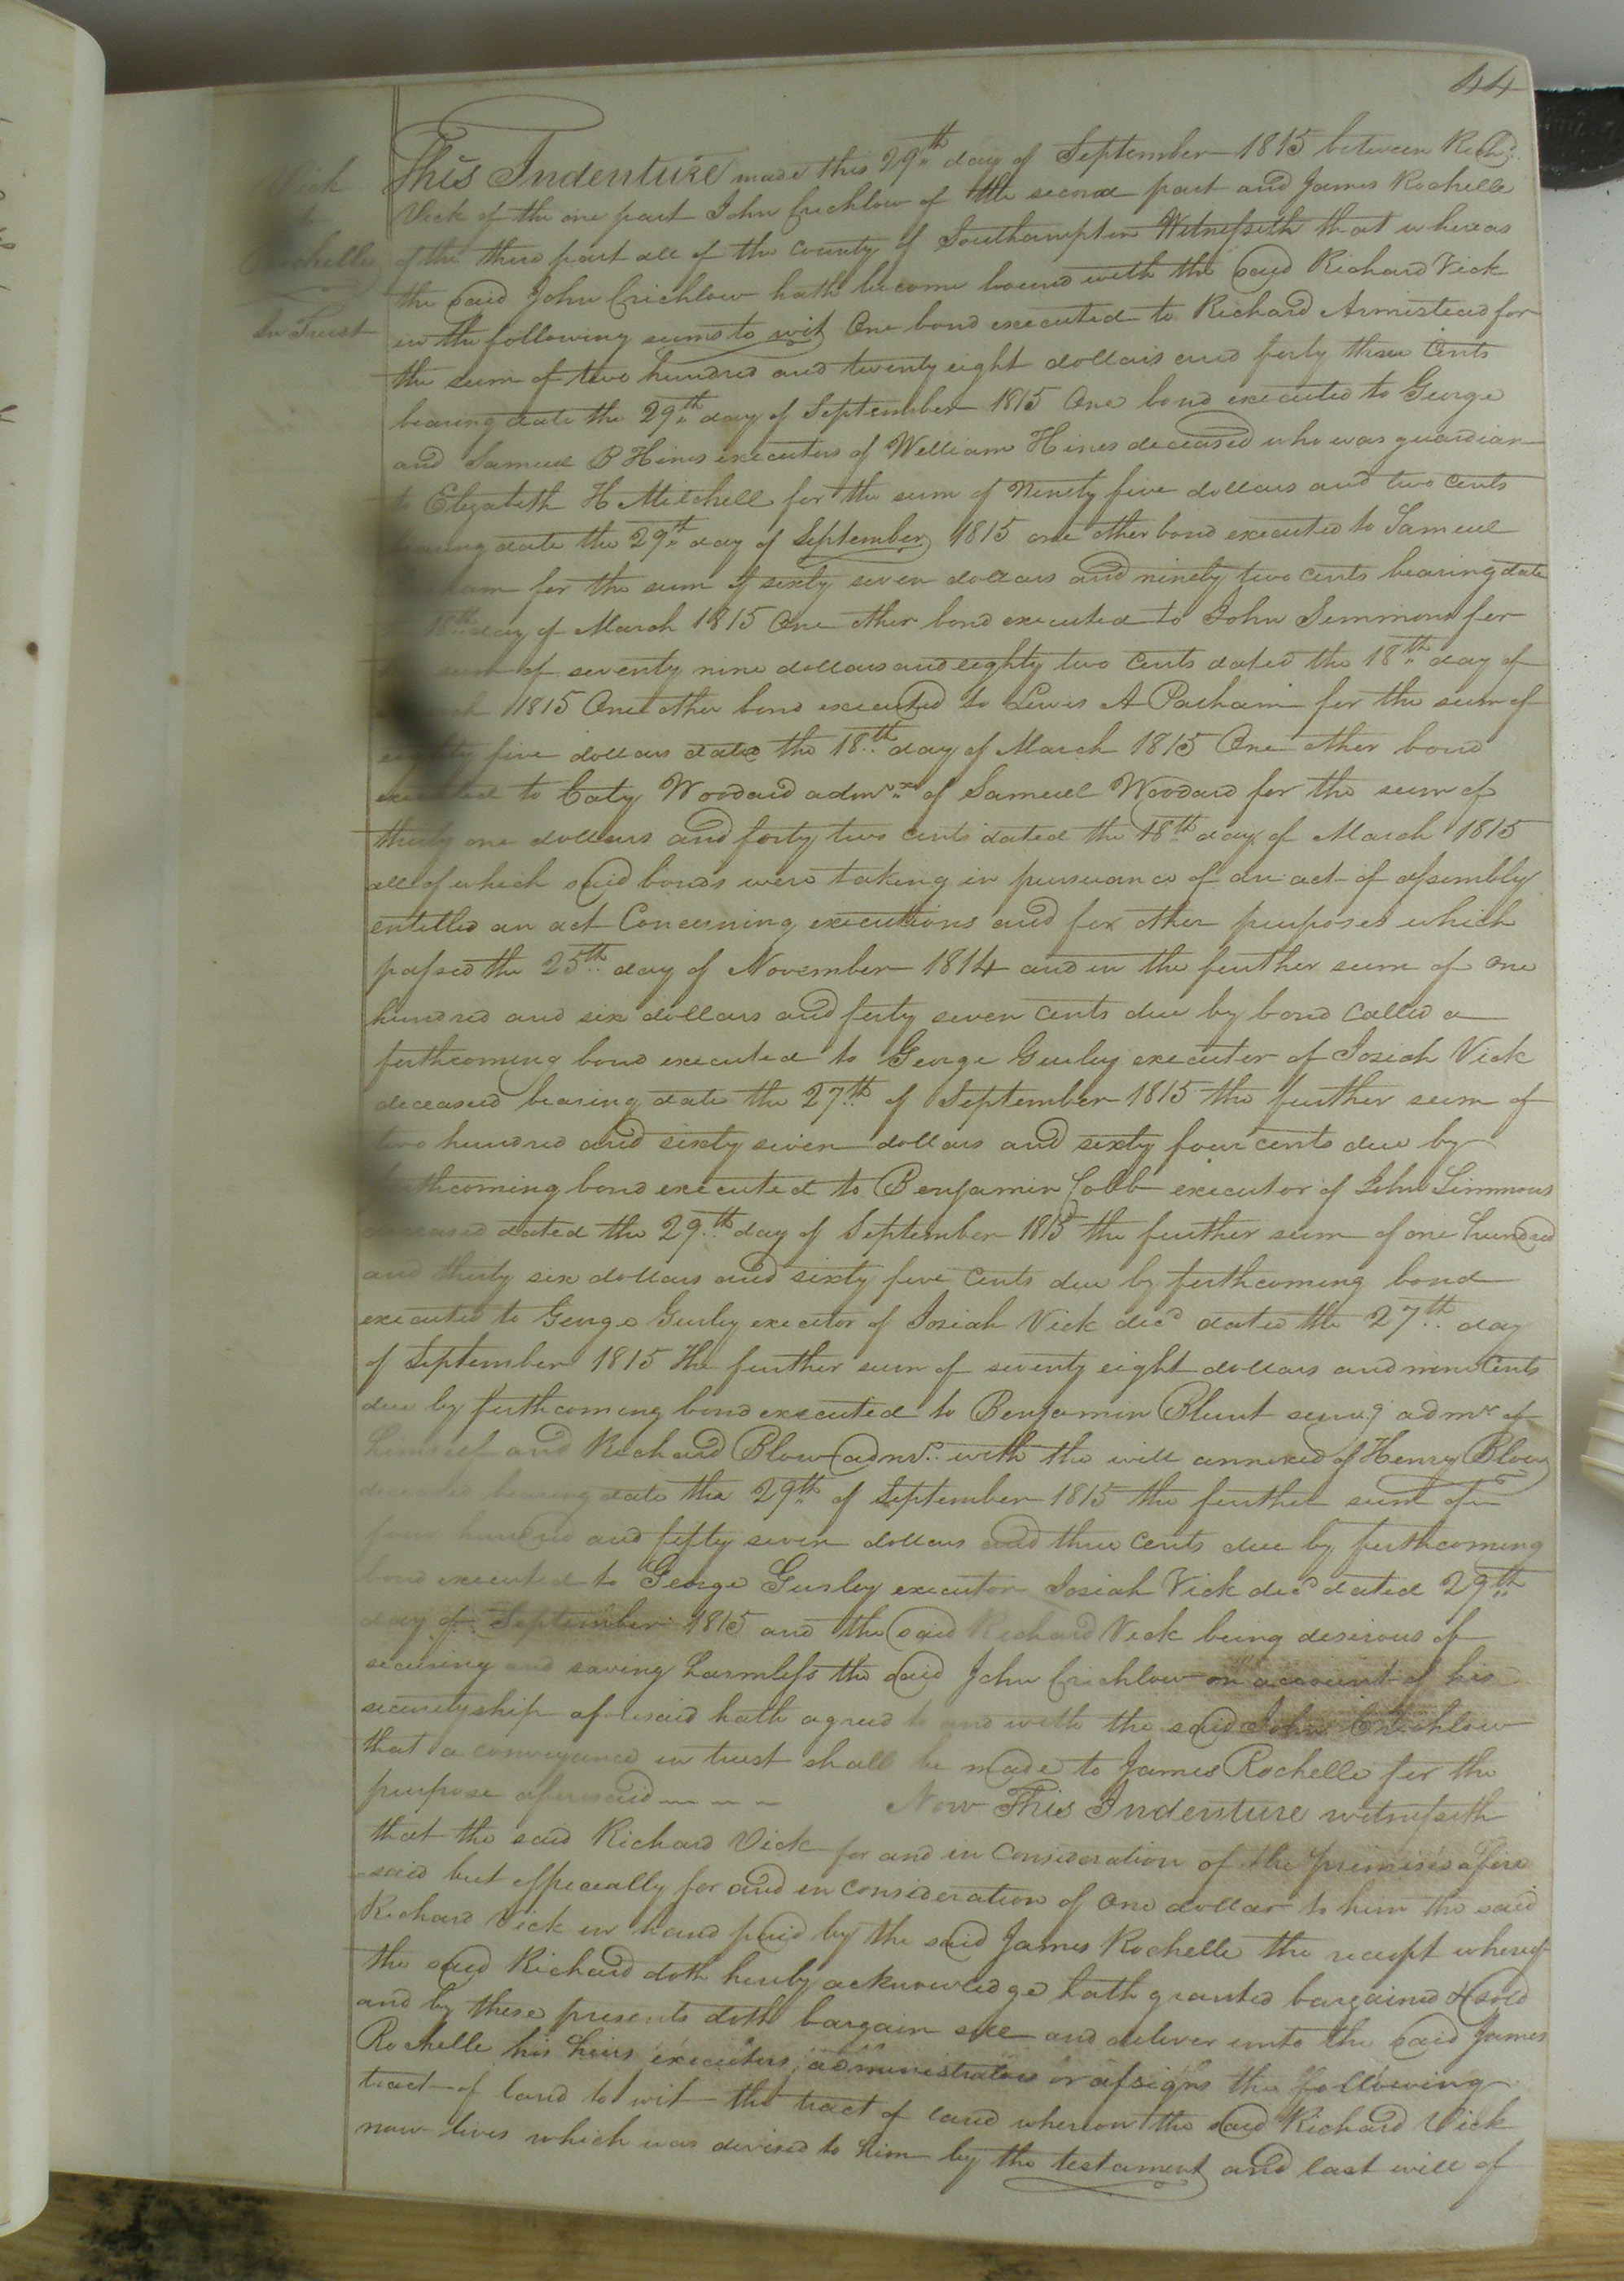 44
Vick
to
Rochelle
In Trust
This Indenture made this 29th day of September 1815 between Richd.
Vick of the one part John Crichlow of the second part and James Rochelle
of the third part all of the county of Southampton Witnesseth that whereas
the said John Crichlow hath become bound with the said Richard Vick
in the following sums to wit One bond executed to Richard Armistead for
the sum of two hundred and twenty eight dollars and forty three Cents
bearing date the 29th day of September 1815 One bond executed to George
and Samuel B Hines executors of William Hines deceased who was guardian
to Elizabeth H Mitchell for the sum of Ninety five dollars and two Cents
bearing date the 29th day of September 1815 one other bond executed to Samuel
for the sum of sixty seven dollars and ninety two cents bearing date
18th day of March 1815 One other bond executed to John Simmons for
sum of seventy nine dollars and eighty two Cents dated the 18th day of
1815 One other bond executed to Lewis A Pacham for the sum of
five dollars dated the 18th day of March 1815 One other bond
executed to Caty Woodard admrx of Samuel Woodard for the sum of
thirty one dollars and forty two cents dated the 18th day of March 1815
all of which said bonds were taking in pursuance of an act of assembly
entitled an act Concerning executions and for other purposes which
passed the 25th day of November 1814 and in the further sum of One
hundred and six dollars and forty seven cents due by bond called a
forthcoming bond executed to George Gurley executor of Josiah Vick
deceased bearing date the 27th of September 1815 the further sum of
two hundred and sixty seven dollars and sixty four cents due by
forthcoming bond executed to Benjamin Cobb executor of John Simmons
deceased dated the 29th day of September 1815 the further sum of one hundred
and thirty six dollars and sixty five Cents due by forthcoming bond
executed to George Gurley executor of Josiah Vick decd dated the 27th day
of September 1815 the further sum of seventy eight dollars and nine Cents
due by forthcoming bond executed to Benjamin Blunt survg admr of
himself and Richard Blow admrs. with the will annexed of Henry Blow
deceased bearing date the 29th of September 1815 the further sum of
four hundred and fifty seven dollars and three Cents due by forthcoming
bond executed to George Gurley executor Josiah Vick decd dated 29th
day of September 1815 and the said Richard Vick being desirous of
securing and saving harmless the said John Crichlow on account of his
securityship aforesaid hath agreed to and with the said John Crichlow
that a conveyance in trust shall be made to James Rochelle for the
purpose aforesaid - - - Now This Indenture witnesseth
that the said Richard Vick for and in Consideration of the premises afore
said but especially for and in consideration of One dollar to him the said
Richard Vick in hand paid by the said James Rochelle the receipt whereof
the said Richard doth hereby acknowledge hath granted bargained & sold
and by these presents doth bargain sell and deliver unto the said James
Rochelle his heirs executors administrators or assigns the following
tract of land to wit the tract of land whereon the said Richard Vick
now lives which was devised to him by the testament and last will of